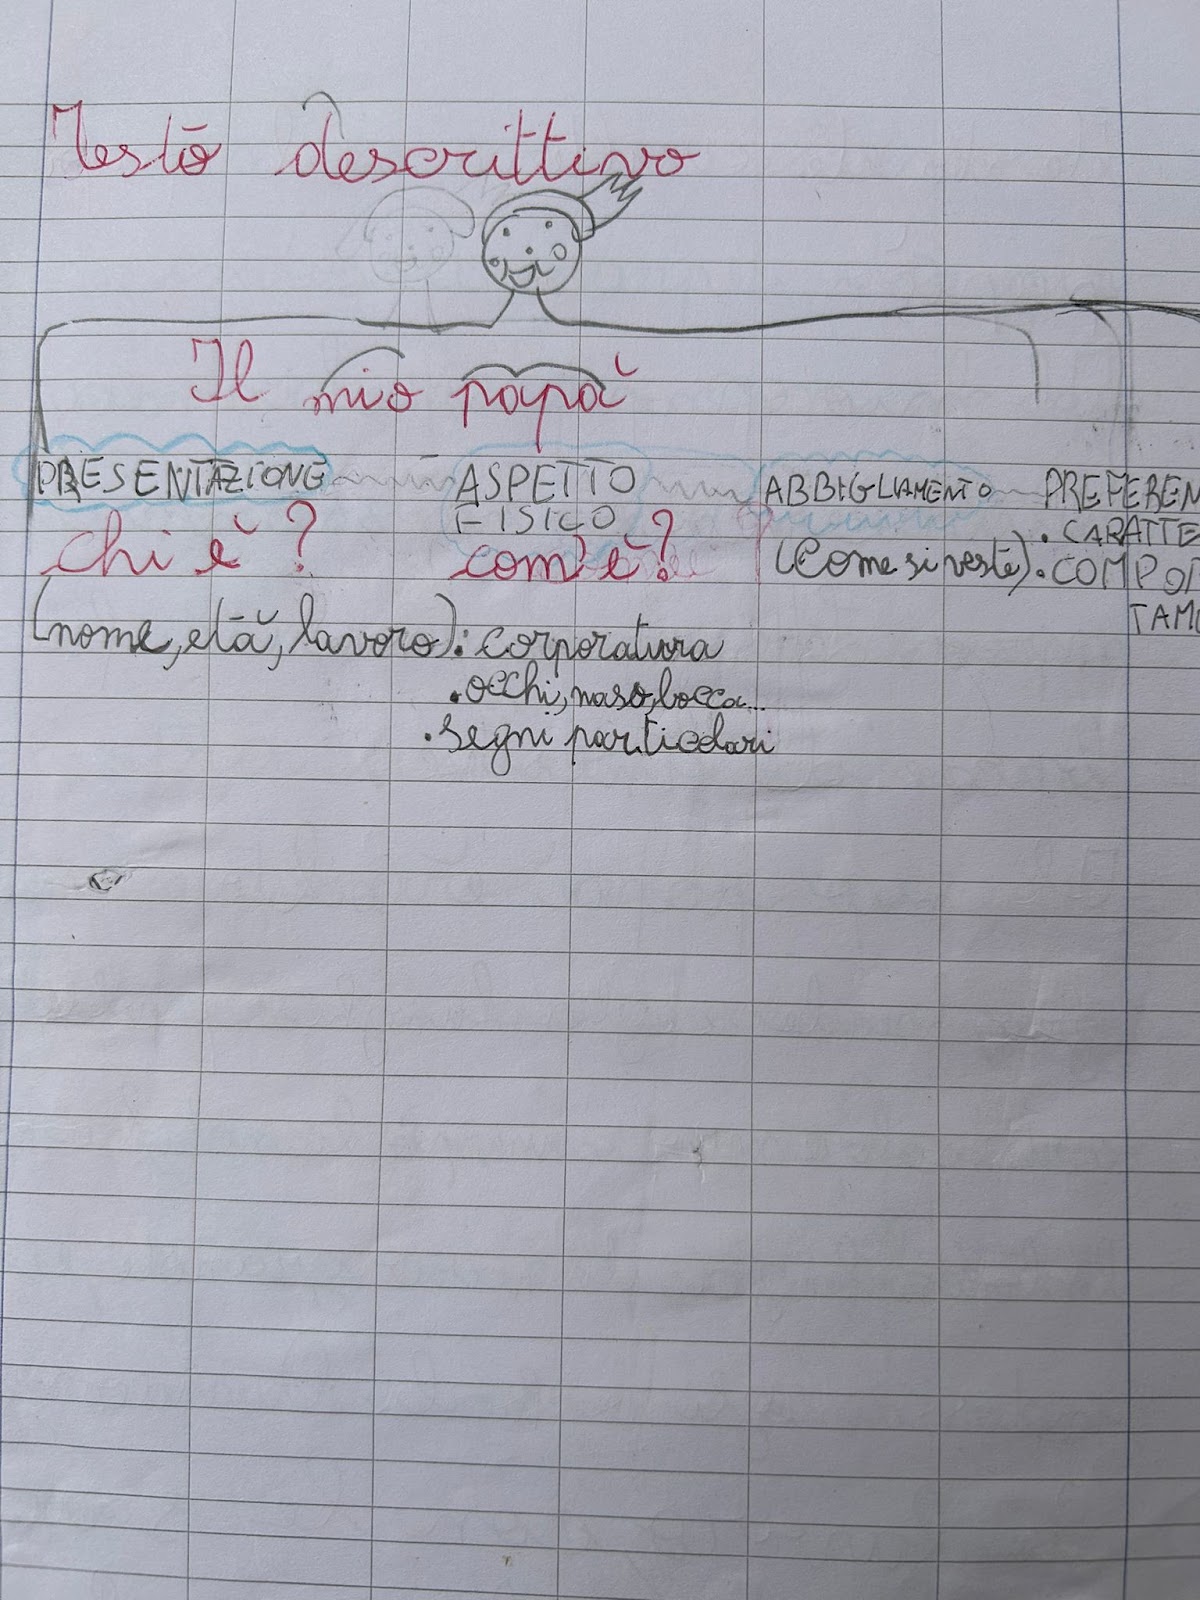 Testo descrittivo
Il mio papà
PRESENTAZIONE ASPETTO FISICO ABBIGLIAMENTO PREFEREN
chi è? com'è? (Come si veste) . CARATTE
. COMPOR
TAME
(nome, età, lavoro) : corporatura
. occhi, naso, bocca...
. segni particolari